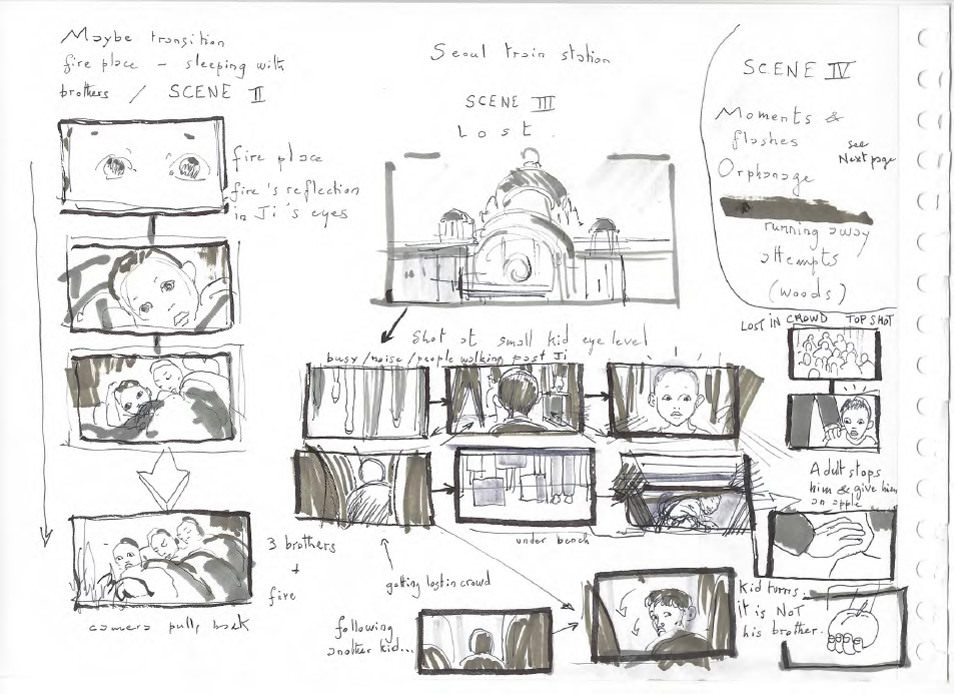 Maybe transition
fire place - sleeping with
brothers / SCENE II
fire place
fire's reflection
in Ji's eyes
3 brothers
+
fire
camera pulls back
Seoul train station
SCENE III
Lost.
Shot at small kid eye level
busy/noise/people walking past Ji
under bench
getting lost in crowd
following
another kid...
SCENE IV
Moments &
flashes
see
Next page
Orphanage
running away
attempts
(woods)
LOST IN CROWD TOP SHOT
Adult stops
him & give him
an apple
Kid turns.
it is NOT
his brother.